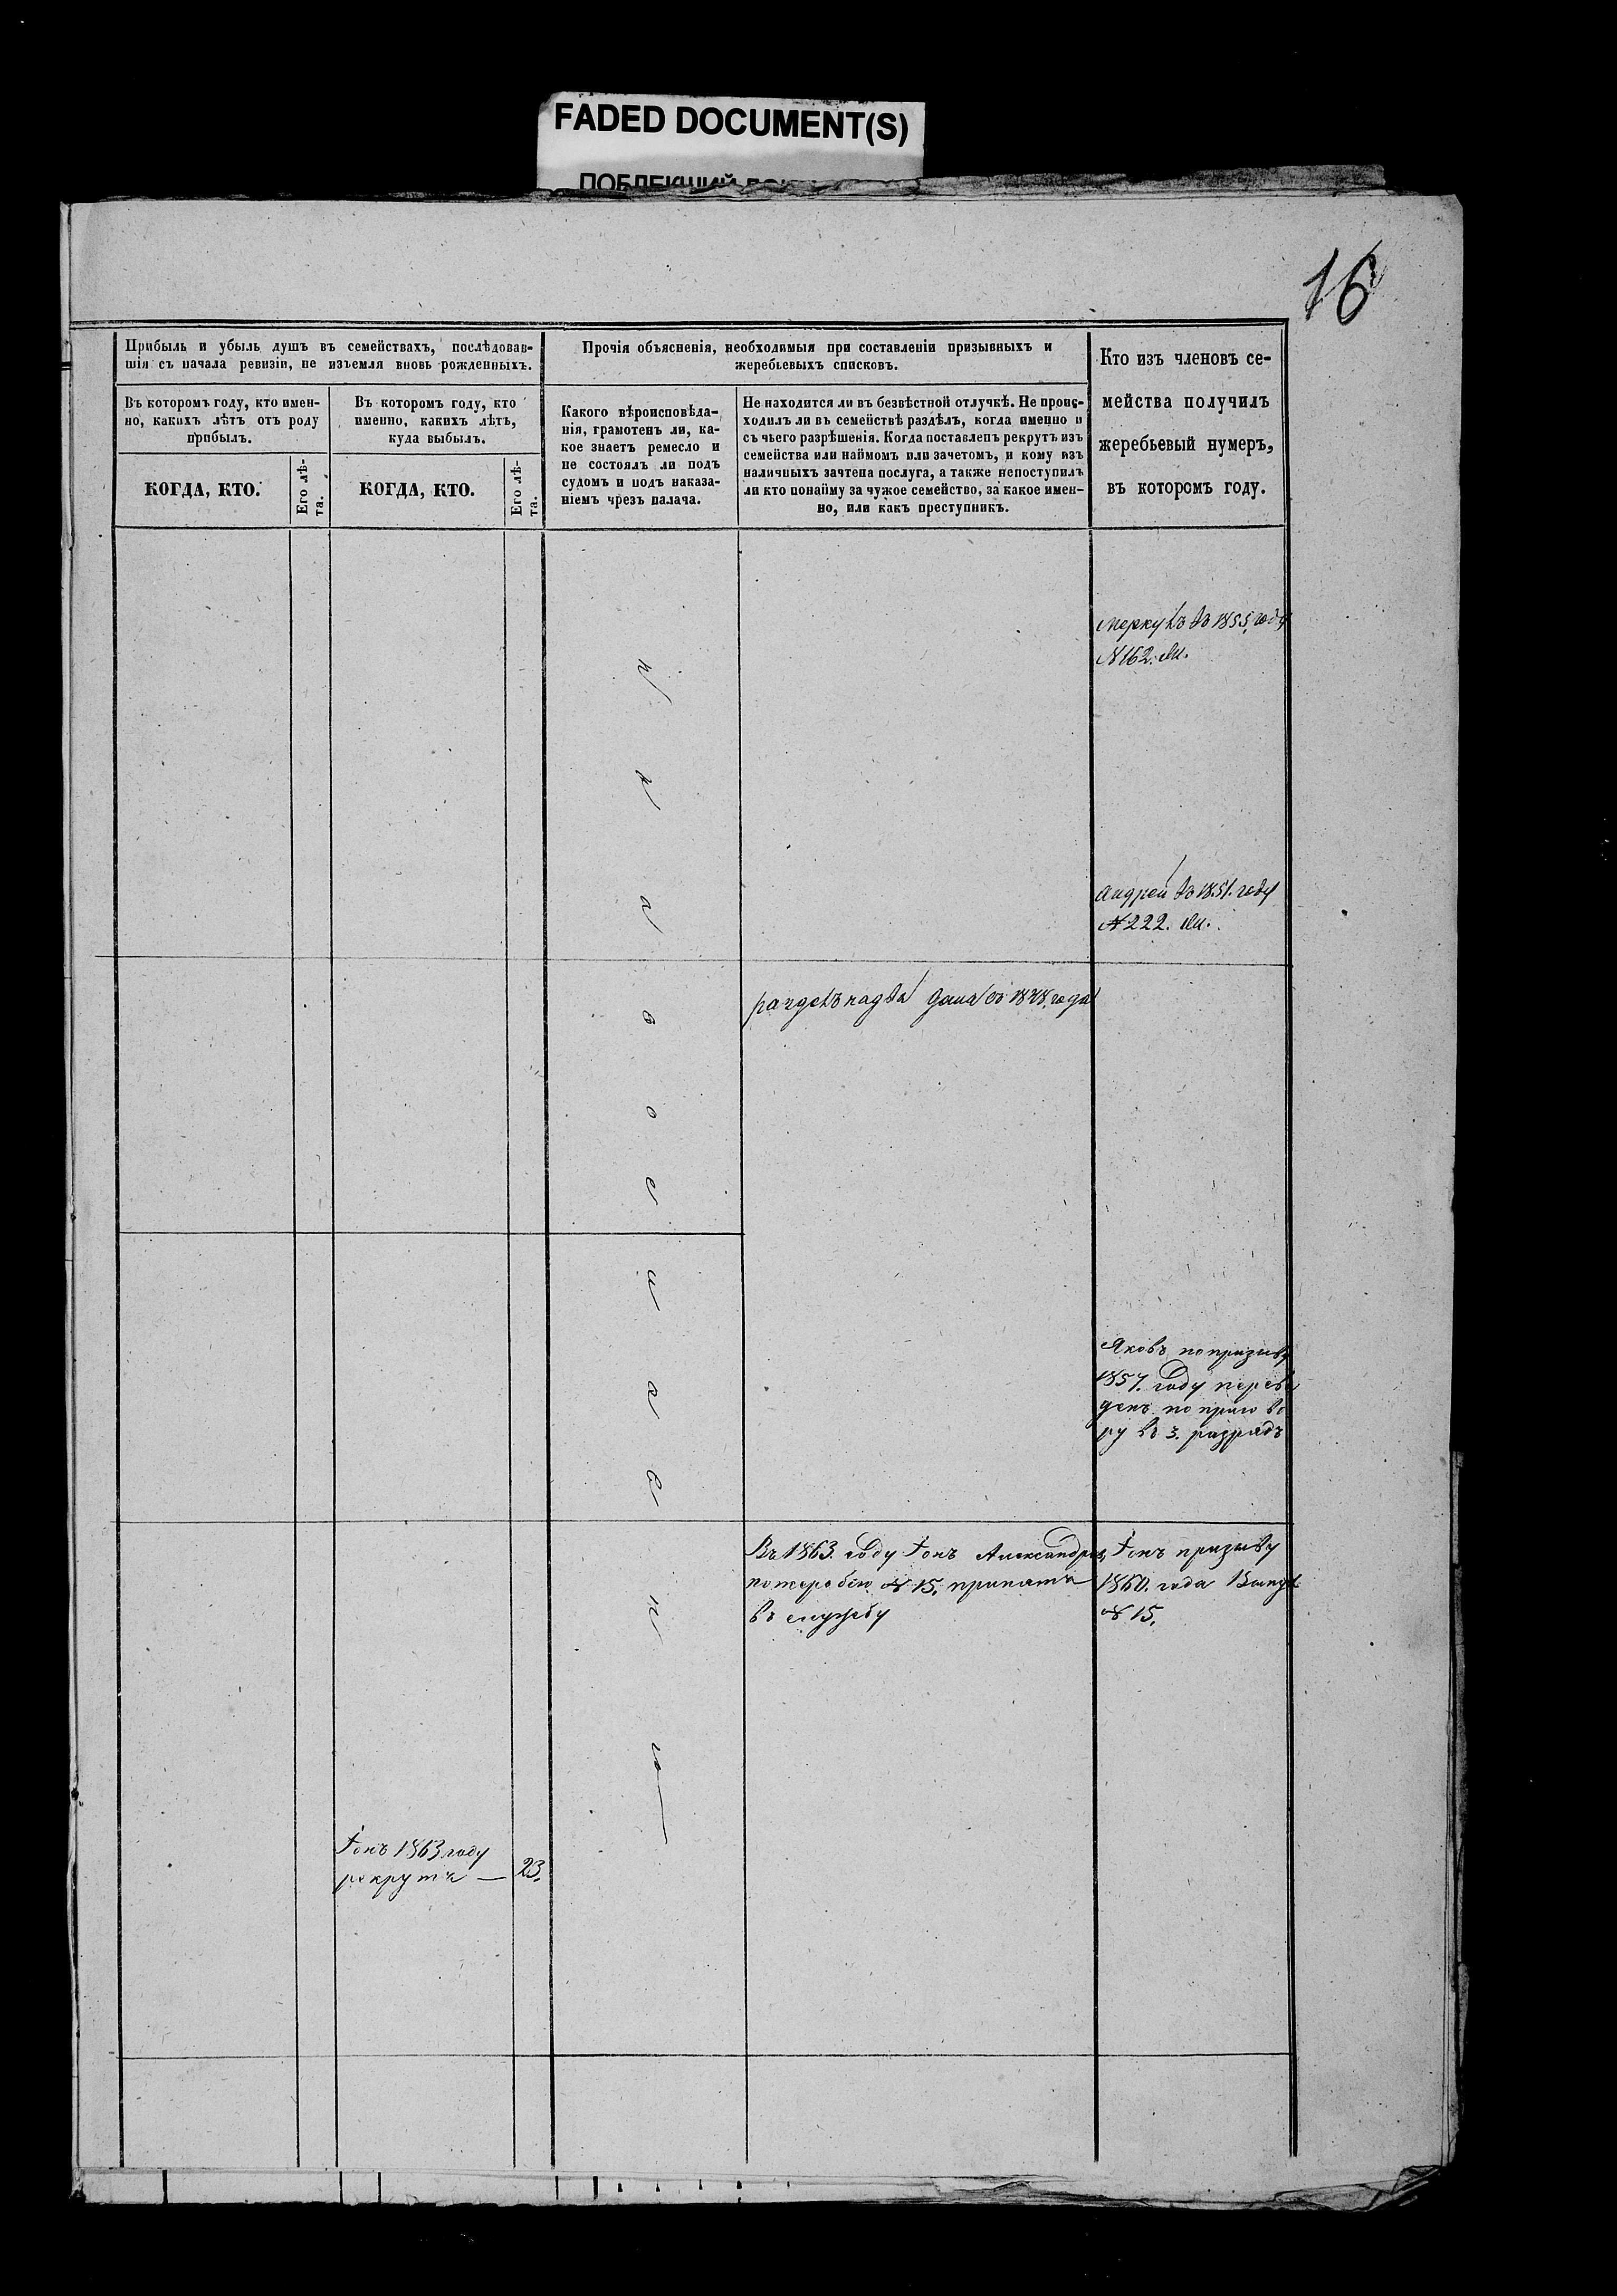 FADED DOCUMENT(S)
16
Прибыль и убыль душъ въ семействахъ, послѣдовав-
шія съ начала ревизіи, не изъемля вновь рожденныхъ.
Въ которомъ году, кто имен-
но, какихъ лѣтъ отъ роду
прибылъ.
КОГДА, КТО.
Его лѣ-
та.
Въ которомъ году, кто
именно, какихъ лѣтъ,
куда выбылъ.
КОГДА, КТО.
Его лѣ-
та.
Прочія объясненія, необходимыя при составленіи призывныхъ и
жеребьевыхъ списковъ.
Какого вѣроисповѣда-
нія, грамотенъ ли, ка-
кое знаетъ ремесло и
не состоялъ ли подъ
судомъ и подъ наказа-
ніемъ чрезъ палача.
Не находится ли въ безвѣстной отлучкѣ. Не проис-
ходилъ ли въ семействѣ раздѣлъ, когда именно и
съ чьего разрѣшенія. Когда поставленъ рекрутъ изъ
семейства или наймомъ или зачетомъ, и кому изъ
наличныхъ зачтена послуга, а также непоступилъ
ли кто понайму за чужое семейство, за какое имен-
но, или какъ преступникъ.
Кто изъ членовъ се-
мейства получилъ
жеребьевый нумеръ,
въ которомъ году.
въ 1855 году
№ 162.
Андрей въ 1851. году
№ 222.
года
Яковъ по призыву
1857. году переве
денъ по приго во
ру въ 3. разрядъ
Въ 1863. году Фокъ
по жеребью № 15. принятъ
въ службу
призыву
1860. года
№ 15.
1863 году
рекрутъ — 23.